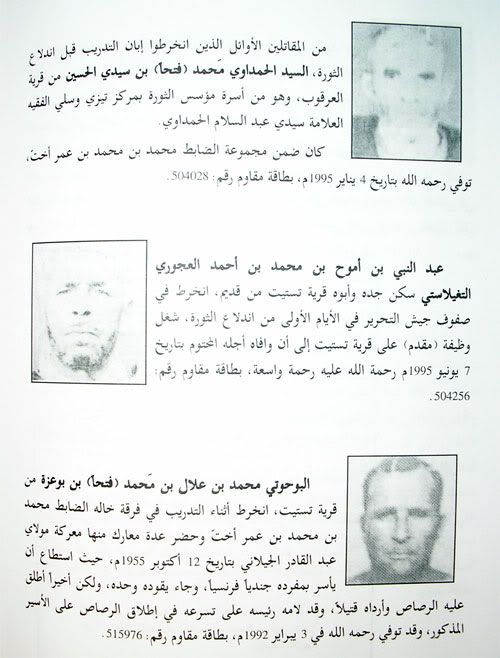 من المقاتلين الأوائل الذين انخرطوا إبان التدريب قبل اندلاع
الثورة، السيد الحمداوي مَحمد (فتحاً) بن سيدي الحسين من قرية
العرقوب، وهو من أسرة مؤسس الثورة بمركز تيزي وسلي الفقيه
العلامة سيدي عبد السلام الحمداوي.
كان ضمن مجموعة الضابط محمد بن محمد بن عمر أختَ،
توفي رحمه الله بتاريخ 4 يناير 1995م، بطاقة مقاوم رقم: 504028.
عبد النبي بن أموح بن محمد بن أحمد العجوري
التغيلاستي سكن جده وأبوه قرية تستيت من قديم، انخرط في
صفوف جيش التحرير في الأيام الأولى من اندلاع الثورة، شغل
وظيفة (مقدم) على قرية تستيت إلى أن وافاه أجله المختوم بتاريخ
7 يونيو 1995م رحمة الله عليه رحمة واسعة، بطاقة مقاوم رقم:
504256.
البوحوتي محمد بن علال بن مَحمد (فتحاً) بن بوعزة من
قرية تستيت، انخرط أثناء التدريب في فرقة خاله الضابط محمد
بن محمد بن عمر أختَ وحضر عدة معارك منها معركة مولاي
عبد القادر الجيلاني بتاريخ 12 أكتوبر 1955م، حيث استطاع أن
يأسر بمفرده جندياً فرنسياً، وجاء يقوده وحده، ولكن أخيراً أطلق
عليه الرصاص وأرداه قتيلاً، وقد لامه رئيسه على تسرعه في إطلاق الرصاص على الأسير
المذكور، وقد توفي رحمه الله في 3 يبراير 1992م، بطاقة مقاوم رقم: 515976.